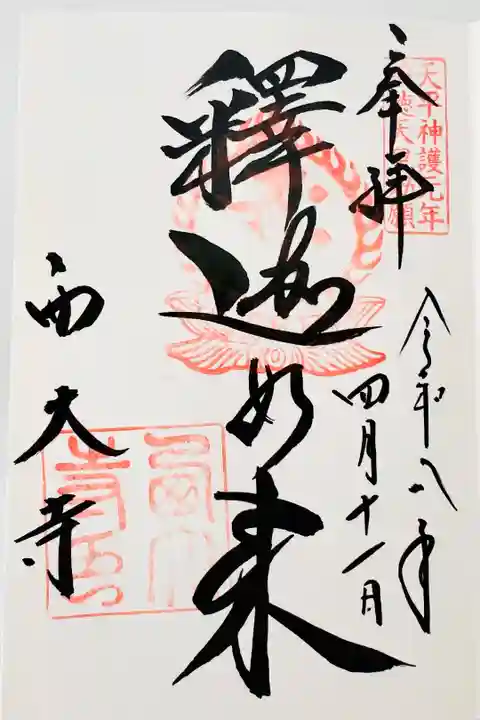 奉拝
天平神護元年
徳天 願
令和八年
四月十一日
釋迦如来
西大寺
西大
寺印